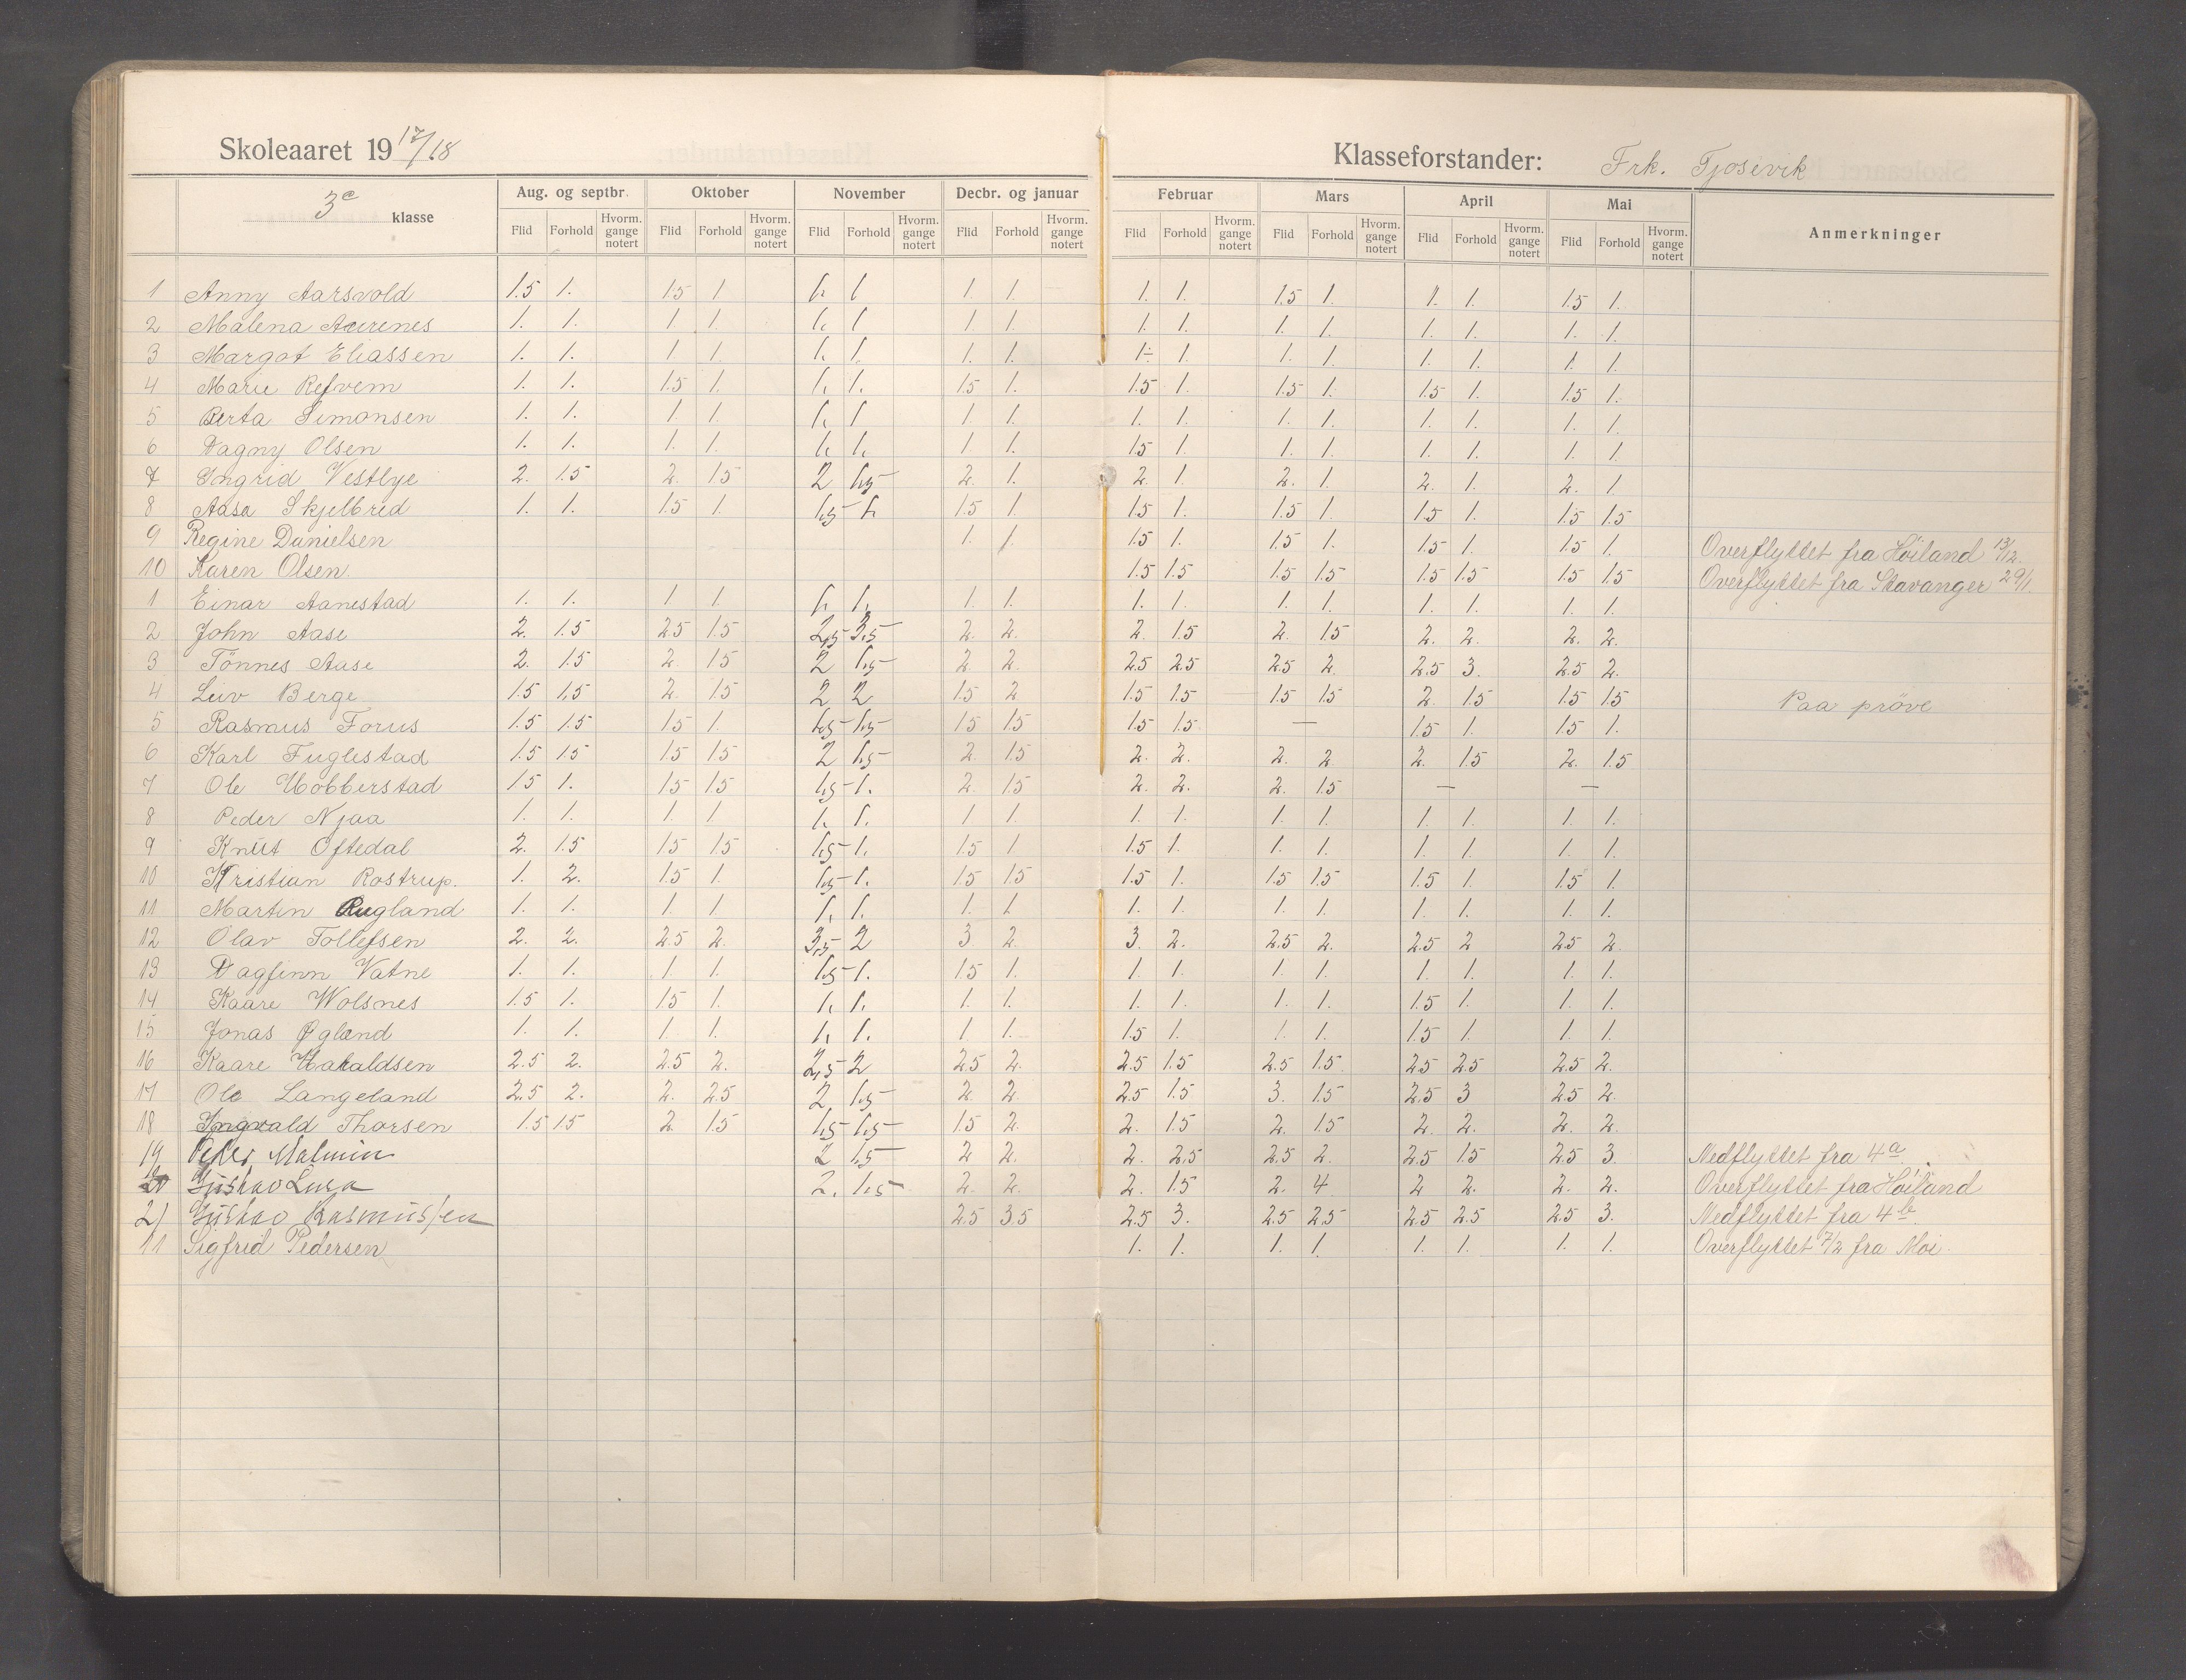 Skoleaaret 1917/18 Klasseforstander: Frk. Tjosevik
3c klasse Aug. og septbr. Oktober November Decbr. og januar Februar Mars April Mai Anmerkninger
Flid Forhold Hvorm. gange notert Flid Forhold Hvorm. gange notert Flid Forhold Hvorm. gange notert Flid Forhold Hvorm. gange notert Flid Forhold Hvorm. gange notert Flid Forhold Hvorm. gange notert Flid Forhold Hvorm. gange notert Flid Forhold Hvorm. gange notert
1 Anny Aarsvold 1.5 1. 1.5 1 1. 1 1. 1. 1. 1. 1.5 1. 1. 1. 1.5 1.
2 Malena Aurenes 1. 1. 1 1. 1. 1 1 1. 1. 1. 1. 1. 1. 1. 1. 1.
3 Margot Eliassen 1. 1. 1 1. 1. 1. 1. 1. 1- 1. 1. 1. 1. 1. 1. 1.
4 Marie Refvem 1. 1. 1.5 1. 1. 1. 1.5 1. 1.5 1. 1.5 1. 1.5 1. 1.5 1.
5 Berta Simonsen 1. 1. 1. 1. 1. 1 1. 1. 1. 1. 1. 1. 1. 1. 1. 1.
6 Dagny Olsen 1. 1. 1. 1. 1. 1. 1. 1. 1.5 1. 1. 1. 1. 1. 1. 1.
7 Ingrid Vestbye 2. 1.5 2. 1.5 2 1.5 2. 1. 2. 1 2. 1. 2. 1. 2. 1
8 Aasa Skjelbred 1. 1. 1.5 1. 1.5 1. 1.5 1 1.5 1. 1.5 1. 1.5 1. 1.5 1.5
9 Regine Danielsen 1. 1. 1.5 1. 1.5 1. 1.5 1. 1.5 1. Overflyttet fra Höiland 13/12.
10 Karen Olsen 1.5 1.5 1.5 1.5 1.5 1.5 1.5 1.5 Overflyttet fra Stavanger 29/1.
1 Einar Aanestad 1. 1. 1 1 1. 1. 1. 1. 1. 1. 1. 1. 1. 1. 1. 1.
2 John Aase 2. 1.5 2.5 1.5 2,5 3,5 2. 2. 2. 1.5 2. 1.5 2. 2. 2. 2.
3 Tönnes Aase 2. 1.5 2. 1.5 2 1.5 2. 2. 2.5 2.5 2.5 2. 2.5 3. 2.5 2.
4 Leiv Berge 1.5 1,5 2. 1.5 2 2 1.5 2 1.5 1.5 1.5 1.5 2. 1.5 1.5 1.5 Paa pröve
5 Rasmus Forus 1.5 1.5 1.5 1. 1.5 1.5 1.5 1.5 1.5 1.5 — 1.5 1. 1.5 1.
6 Karl Fuglestad 1.5 1.5 1.5 1.5 2 1.5 2. 1.5 2. 2. 2. 2 2. 1.5 2. 1.5
7 Ole Hobberstad 1.5 1. 1.5 1.5 1.5 1. 2. 1.5 2. 2. 2. 1.5 — —
8 Peder Njaa 1. 1. 1. 1 1. 1. 1 1. 1. 1. 1. 1. 1. 1. 1. 1.
9 Knut Oftedal 2. 1.5 1.5 1.5 1.5 1. 1.5 1 1.5 1. 1. 1. 1. 1. 1. 1.
10 Kristian Rostrup. 1. 2. 1.5 1. 1.5 1. 1.5 1.5 1.5 1. 1.5 1.5 1.5 1. 1.5 1.
11 Martin Rugland 1. 1. 1. 1 1. 1. 1. 1 1. 1. 1. 1. 1. 1. 1. 1.
12 Olav Tollefsen 2. 2. 2.5 2. 3,5 2 3 2. 3. 2. 2.5 2. 2.5 2 2.5 2.
13 Dagfinn Vatne 1. 1. 1. 1. 1.5 1. 1.5 1. 1. 1. 1. 1. 1. 1. 1. 1.
14 Kaare Wolsnes 1.5 1. 1.5 1. 1. 1. 1. 1. 1. 1. 1. 1. 1.5 1. 1. 1.
15 Jonas Øgland 1. 1. 1. 1. 1. 1. 1. 1. 1.5 1. 1. 1. 1.5 1. 1. 1.
16 Kaare Haraldsen 2.5 2. 2.5 2. 2,5 2 2.5 2. 2.5 1.5 2.5 1.5 2.5 2.5 2.5 2.
17 Ole Langeland 2.5 2. 2. 2.5 2 1.5 2. 2. 2.5 1.5 3. 1.5 2.5 3 2.5 2.
18 Ingvald Thorsen 1.5 1.5 2. 1.5 1.5 1.5 1.5 2. 2. 1.5 2. 1.5 2. 2. 2. 2.
19 Peder Malmin 2 1.5 2 2. 2. 2.5 2.5 2. 2.5 1.5 2.5 3. Nedflyttet fra 4a.
20 Gustav Lura 2. 1.5 2. 2. 2. 1.5 2. 4 2 2. 2. 2. Overflyttet fra Höiland
21 Gustav Rasmussen 2.5 3.5 2.5 3. 2.5 2.5 2.5 2.5 2.5 3. Nedflyttet fra 4b.
11 Sigfrid Pedersen 1. 1. 1. 1. 1. 1. 1. 1. Overflyttet 7/2 fra Moi.